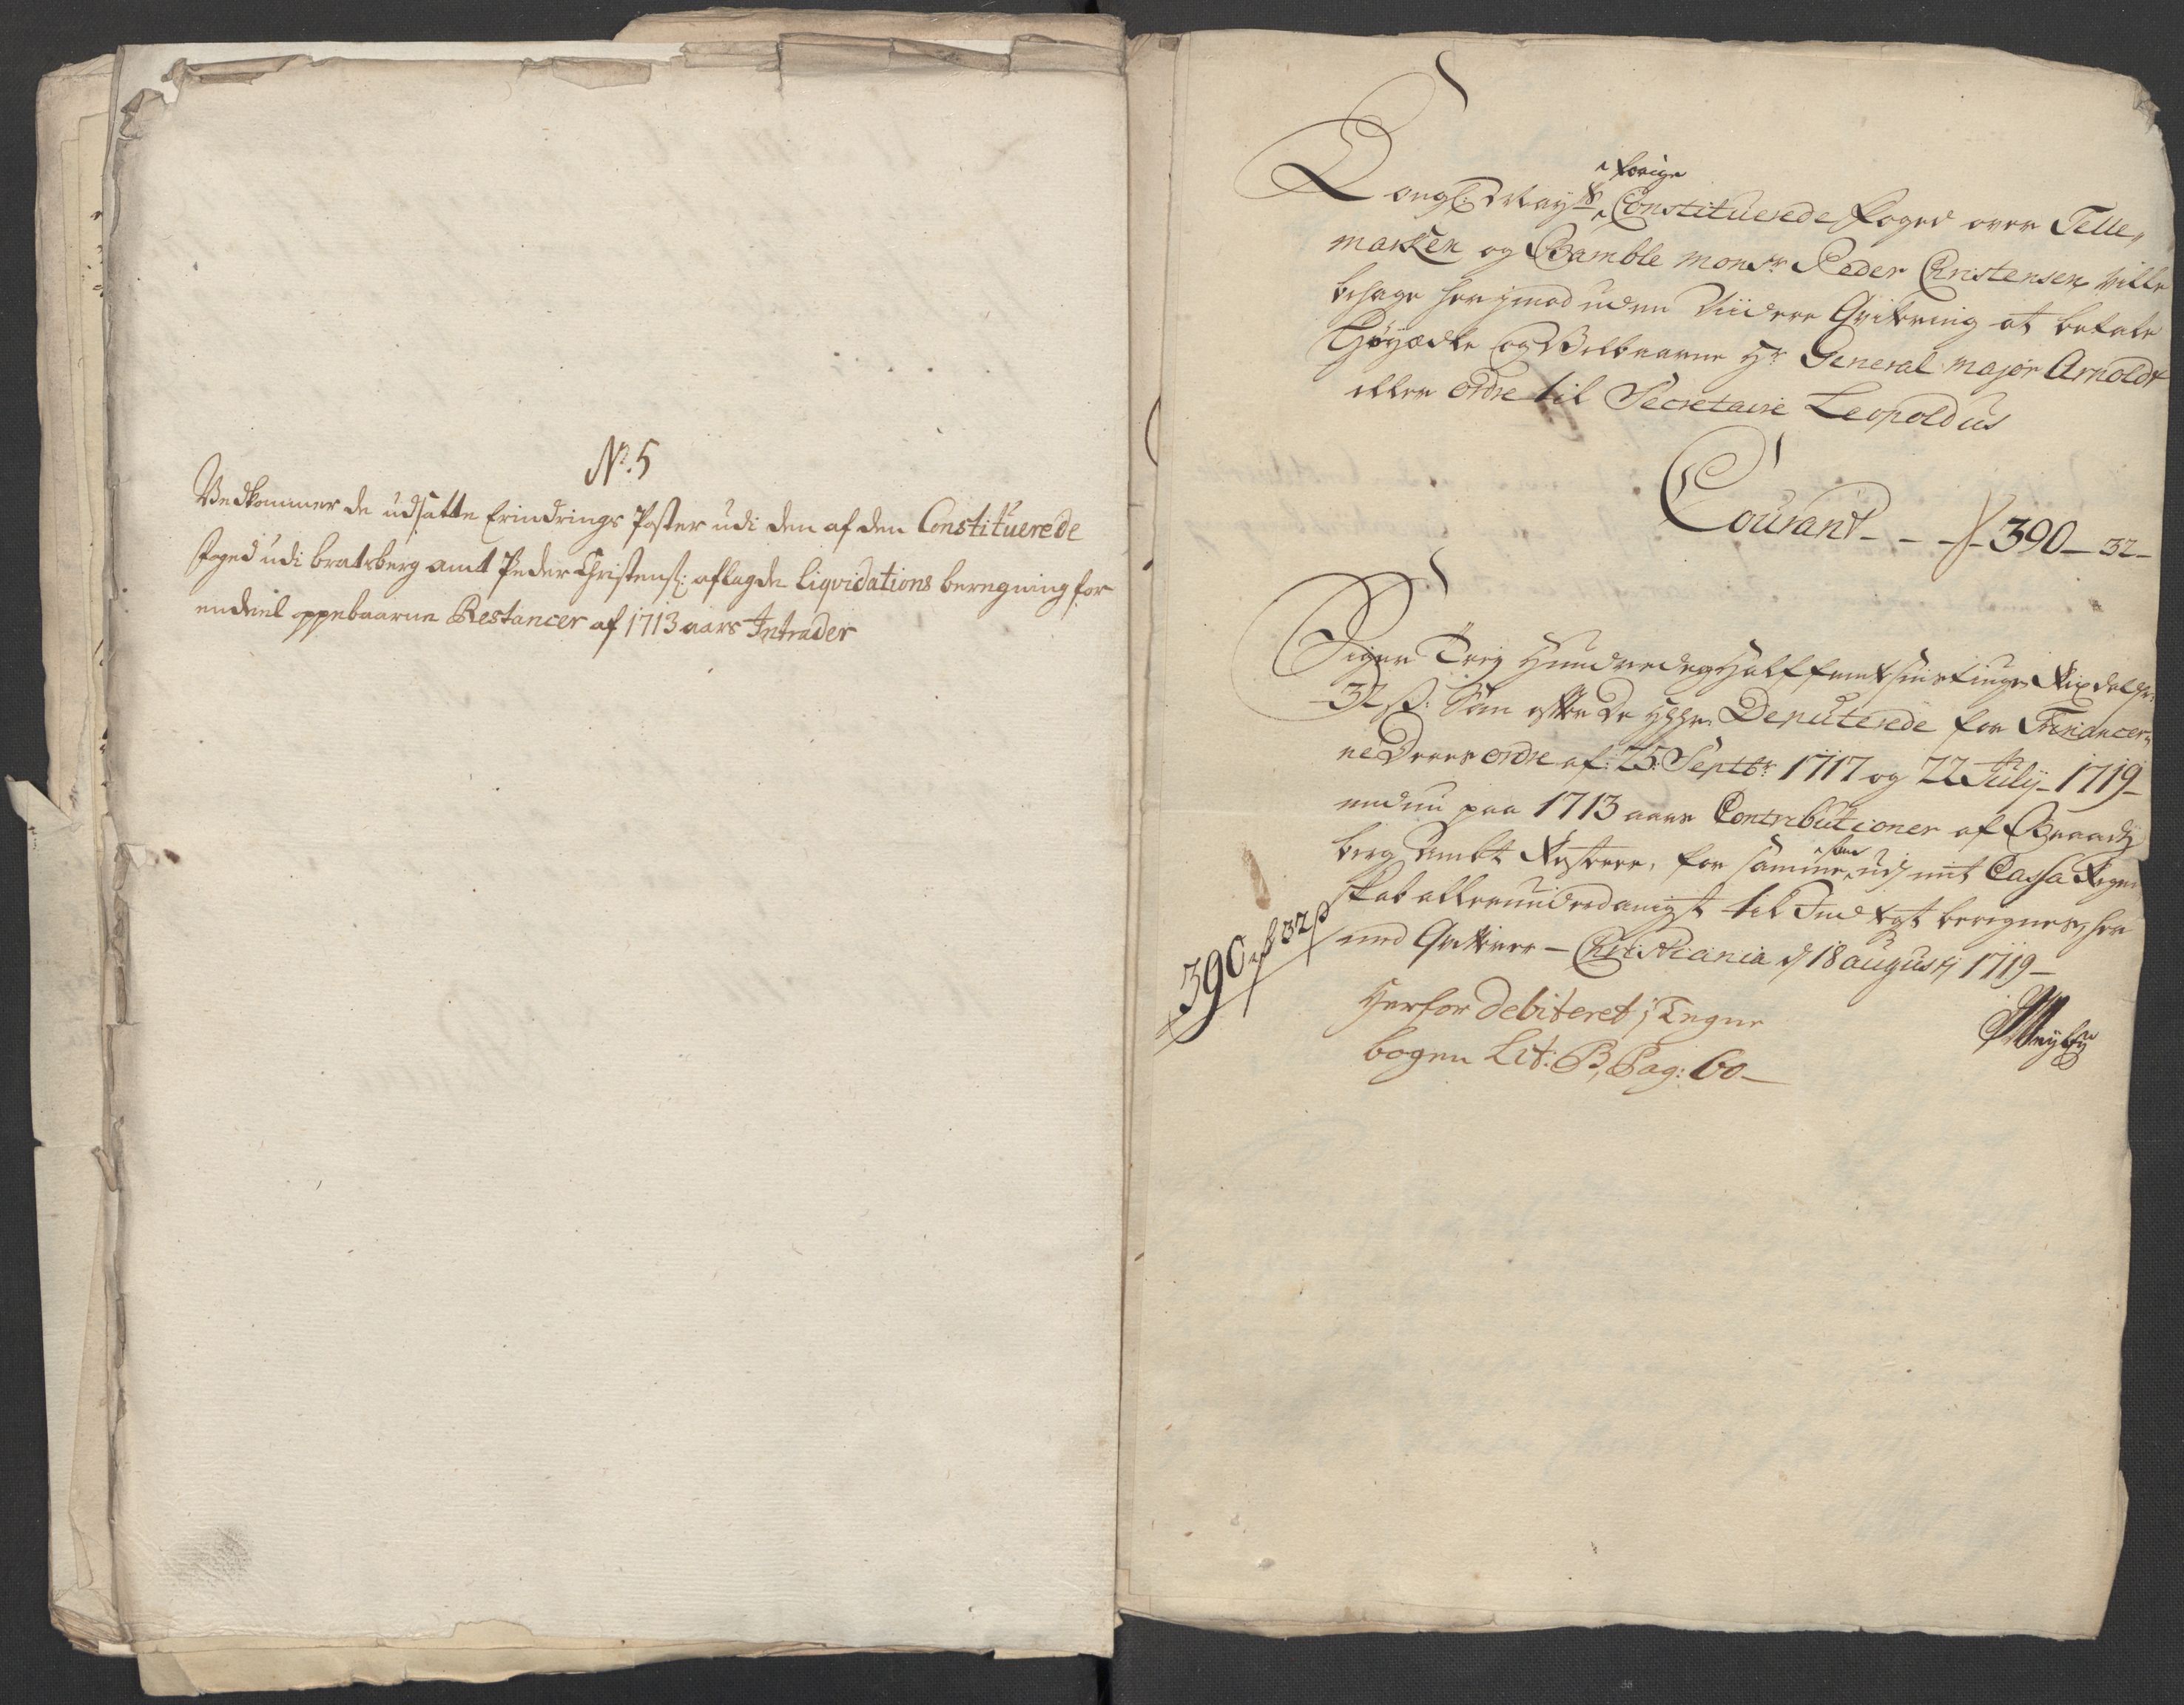 No. 5
Vedkommer de udsatte Erindrings Poster udi den af den Constituerede
foged udi bratsberg amt Peder Christens: aflagde Liqvidations beregning for
endeel oppebaarne Restancer af 1713 aars Intrader
forige
Kongl: Mayts Constituerede foged over Telle„
marken og Bamble Monsr Peder Christensen ville
behage her jmod uden Viidere Qvitering at betale
Høyædle og Velbaarne Hr General Major Arnoldt
eller ordre til Secretaire Leopoldus
Courant - - - 390 - 32 -
Siger Trej Hundrede og Halffemtsindstiuge Rixdaler
32 ß: Som efter De HHr Deputerede for Financer„
ne Deres ordre af: 25: Septbr 1717 og 22 July - 1719 -
endnu paa 1713 aars Contributioner af Braadtz
berg Ambt Resterer, for samme som udj mit Cassa Regen
skab allerunderdanigst til Indtegt beregnes, her
med Qvitterer - Christiania d 18 augustj 1719 -
390 32 ß
Herfor debiteret j Tegne
bogen Lit: B, Pag: 60 -